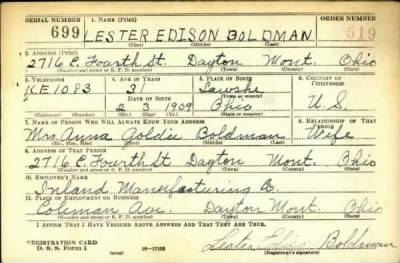 SERIAL NUMBER 1. NAME (Print) ORDER NUMBER
699 LESTER EDISON BOLDMAN 519
(First) (Middle) (Last)
2. ADDRESS (Print)
2716 E. Fourth St. Dayton Mont. Ohio
(Number and street or R. F. D. number) (Town) (County) (State)
3. TELEPHONE 4. AGE IN YEARS 5. PLACE OF BIRTH 6. COUNTRY OF CITIZENSHIP
KE 1083 31
DATE OF BIRTH (Town or county)
2 3 1909 Ohio U. S.
(Exchange) (Number) (Mo.) (Day) (Yr.) (State or country)
7. NAME OF PERSON WHO WILL ALWAYS KNOW YOUR ADDRESS 8. RELATIONSHIP OF THAT PERSON
Mrs. Anna Goldie Boldman Wife
(Mr., Mrs., Miss) (First) (Middle) (Last)
9. ADDRESS OF THAT PERSON
2716 E. Fourth St. Dayton Mont. Ohio
(Number and street or R. F. D. number) (Town) (County) (State)
10. EMPLOYER'S NAME
Inland Manufacturing Co.
11. PLACE OF EMPLOYMENT OR BUSINESS
Coleman Ave. Dayton Mont. Ohio
(Number and street or R. F. D. number) (Town) (County) (State)
I AFFIRM THAT I HAVE VERIFIED ABOVE ANSWERS AND THAT THEY ARE TRUE.
REGISTRATION CARD
D. S. S. Form 1 (over) 16-17105 Lester Edison Boldman
(Registrant's signature)